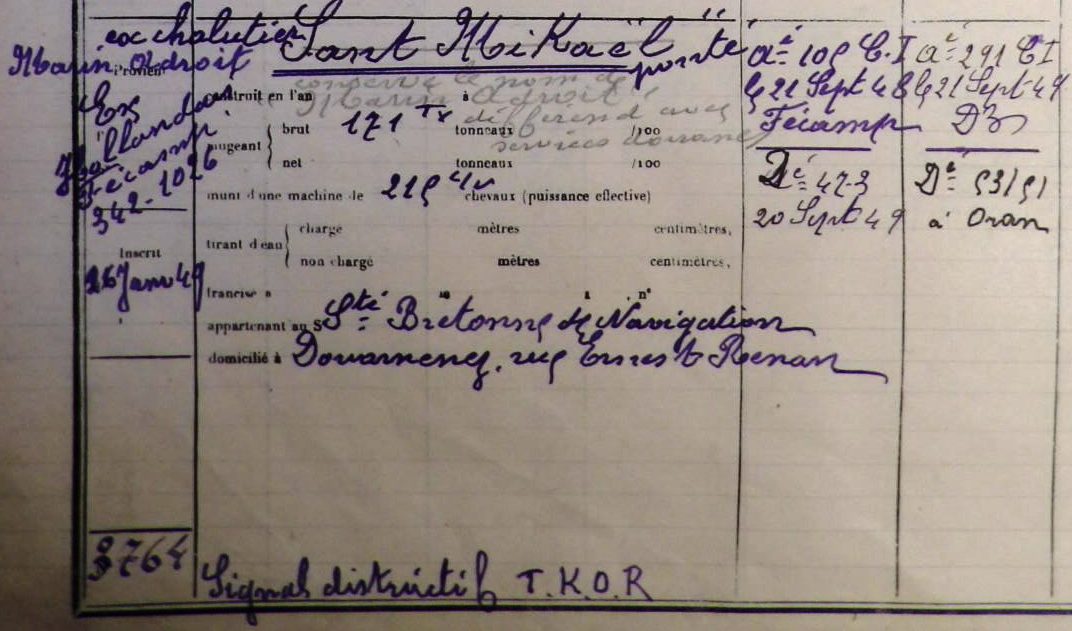 ex chalutier Sant MiKaël
Marin Adroit
Provient
Ex
Hollandais
Fécamp
342-1026
Inscrit
26 Janv 49
3764
conserve le nom de
construit en l'an à
"Marin Adroit"
différend avec
services douanes
jaugeant
brut 171 Tx tonneaux /100
net tonneaux /100
muni d'une machine de 215 chevaux (puissance effective)
tirant d'eau
chargé mètres centimètres,
non chargé mètres centimètres,
francisé à n°
appartenant au S Sté Bretonne de Navigation
domicilié à Douarnenez, rue Ernest Renan
Signal distinctif T.K.O.R
Aé 105 C.I
le 21 Sept 48
Fécamp
Dé 47-3
20 Sept 49
Aé 291 CI
le 21 Sept 49
DZ
Dé 53/51
à Oran